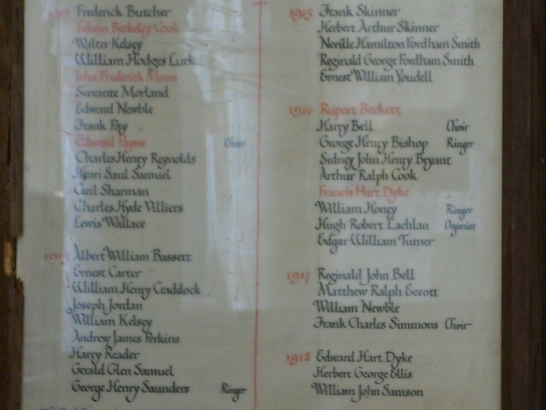 Frederick Butcher
Edwin Berkeley Cook
Walter Kelsey
William Hodges Lurk
John Frederick Moon
Servante Morland
Edward Newble
Frank Pay
Edmund Payne Choir
Charles Henry Reynolds
Henri Saul Samuel
Cecil Sharman
Charles Hyde Villiers
Lewis Wallace
1915 Albert William Bassett
Ernest Carter
William Henry Craddock
Joseph Jordan
William Kelsey
Andrew James Perkins
Harry Reader
Gerald Glen Samuel
George Henry Saunders Ringer
1915 Frank Skinner
Herbert Arthur Skinner
Neville Hamilton Fordham Smith
Reginald George Fordham Smith
Ernest William Youdell
1916 Rupert Beckett
Harry Bell Choir
George Henry Bishop Ringer
Sidney John Henry Bryant
Arthur Ralph Cook
Francis Hart Dyke
William Honey Ringer
Hugh Robert Lachlan Organist
Edgar William Turner
1917 Reginald John Bell
Matthew Ralph Escott
William Newble
Frank Charles Simmons Choir
1918 Edward Hart Dyke
Herbert George Ellis
William John Samson